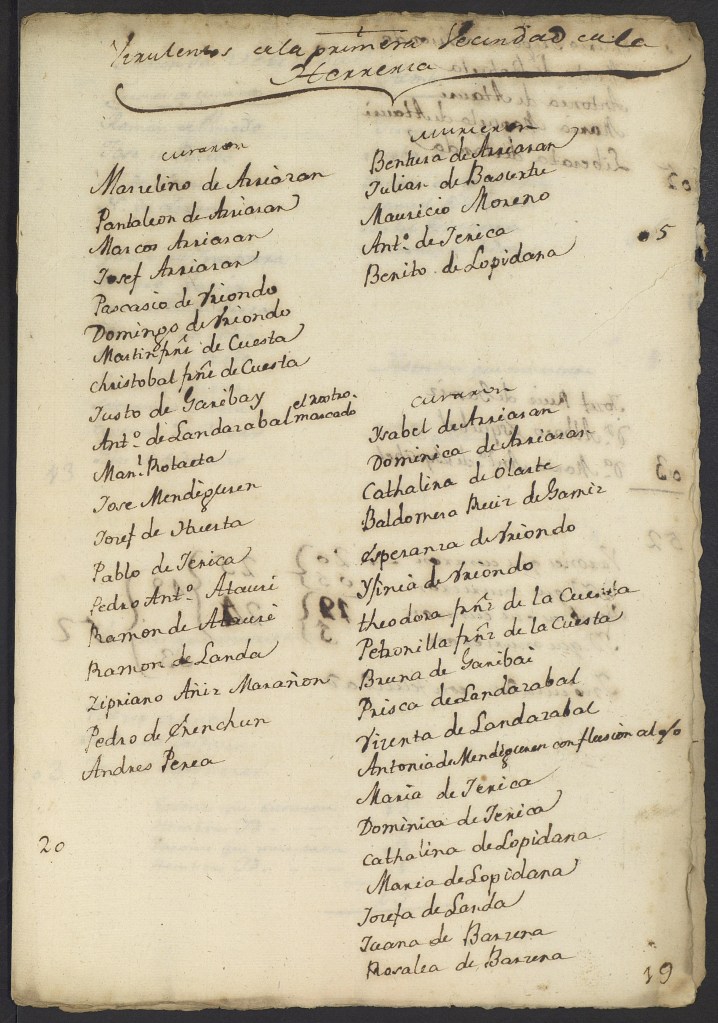 Virulentos de la primera Vecindad de la
Herreria
curaron
Marzelino de Arriaran
Pantaleon de Arriaran
Marcos Arriaran
Josef Arriaran
Pascasio de Vriondo
Domingo de Vriondo
Martin frñz de Cuesta
christobal frñz de Cuesta
Justo de Garibay
Antº. de Landazabal el rostro.
mascado
Manl. Rotaeta
Jose Mendiguren
Jozef de Huerta
Pablo de Jerica
Pedro Antº. Atauri
Ramon de Atauri
Ramon de Landa
Zipriano Añiz Marañon
Pedro de Erenchun
Andres Perea
20
murieron
Bentura de Arriaran
Julian de Basterte
Mauricio Moreno
Antº. de Jerica
Benito de Lopidana
5
curaron
Ysabel de Arriaran
Dominica de Arriaran
Cathalina de Olarte
Baldomera Ruiz de Gamiz
Esperanza de Vriondo
Yfinia de Vriondo
theodora frñz de la Cuesta
Petronilla frñz de la Cuesta
Bruna de Garibai
Prisca de Landazabal
Vizenta de Landazabal
Antonia de Mendiguren con fluxion al o/o
Maria de Jerica
Dominica de Jerica
Cathalina de Lopidana
Maria de Lopidana
Jozefa de Landa
Juana de Barzena
Rosalea de Barzena
19